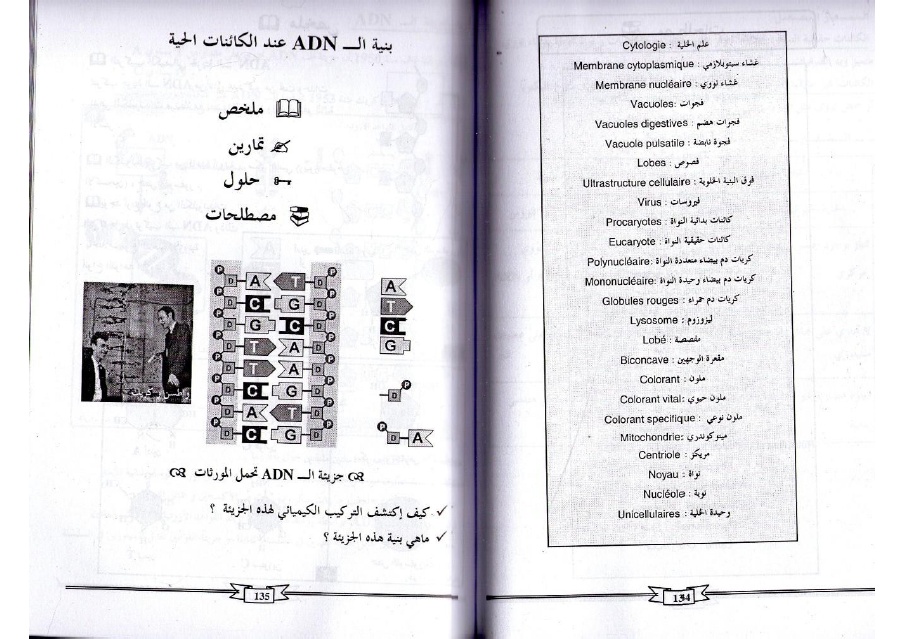 بنية الـــ ADN عند الكائنات الحية
ملخص
تمارين
حلول
مصطلحات
P
D A T D
P
D C G D
P
D G C D
P
D T A D
P
D T A D
P
D C G D
P
D A T D
P
D C G D
P
A
T
C
G
D P
P D A
جزيئة الـــ ADN تحمل المورثات
✓ كيف إكتشف التركيب الكيميائي لهذه الجزيئة ؟
✓ ماهي بنية هذه الجزيئة ؟
135
Cytologie : علم الخلية
Membrane cytoplasmique : غشاء سيتوبلازمي
Membrane nucléaire : غشاء نووي
Vacuoles : فجوات
Vacuoles digestives : فجوات هضم
Vacuole pulsatile : فجوة نابضة
Lobes : فصوص
Ultrastructure cellulaire : فوق البنية الخلوية
Virus : فيروسات
Procaryotes : كائنات بدائية النواة
Eucaryote : كائنات حقيقية النواة
Polynucléaire: كريات دم بيضاء متعددة النواة
Mononucléaire: كريات دم بيضاء وحيدة النواة
Globules rouges : كريات دم حمراء
Lysosome : ليزوزوم
Lobé : مفصصة
Biconcave : مقعرة الوجهين
Colorant : ملون
Colorant vital: ملون حيوي
Colorant specifique : ملون نوعي
Mitochondrie: ميتوكوندري
Centriole : مريكز
Noyau : نواة
Nucléole : نوية
Unicellulaires : وحيدة الخلية
134